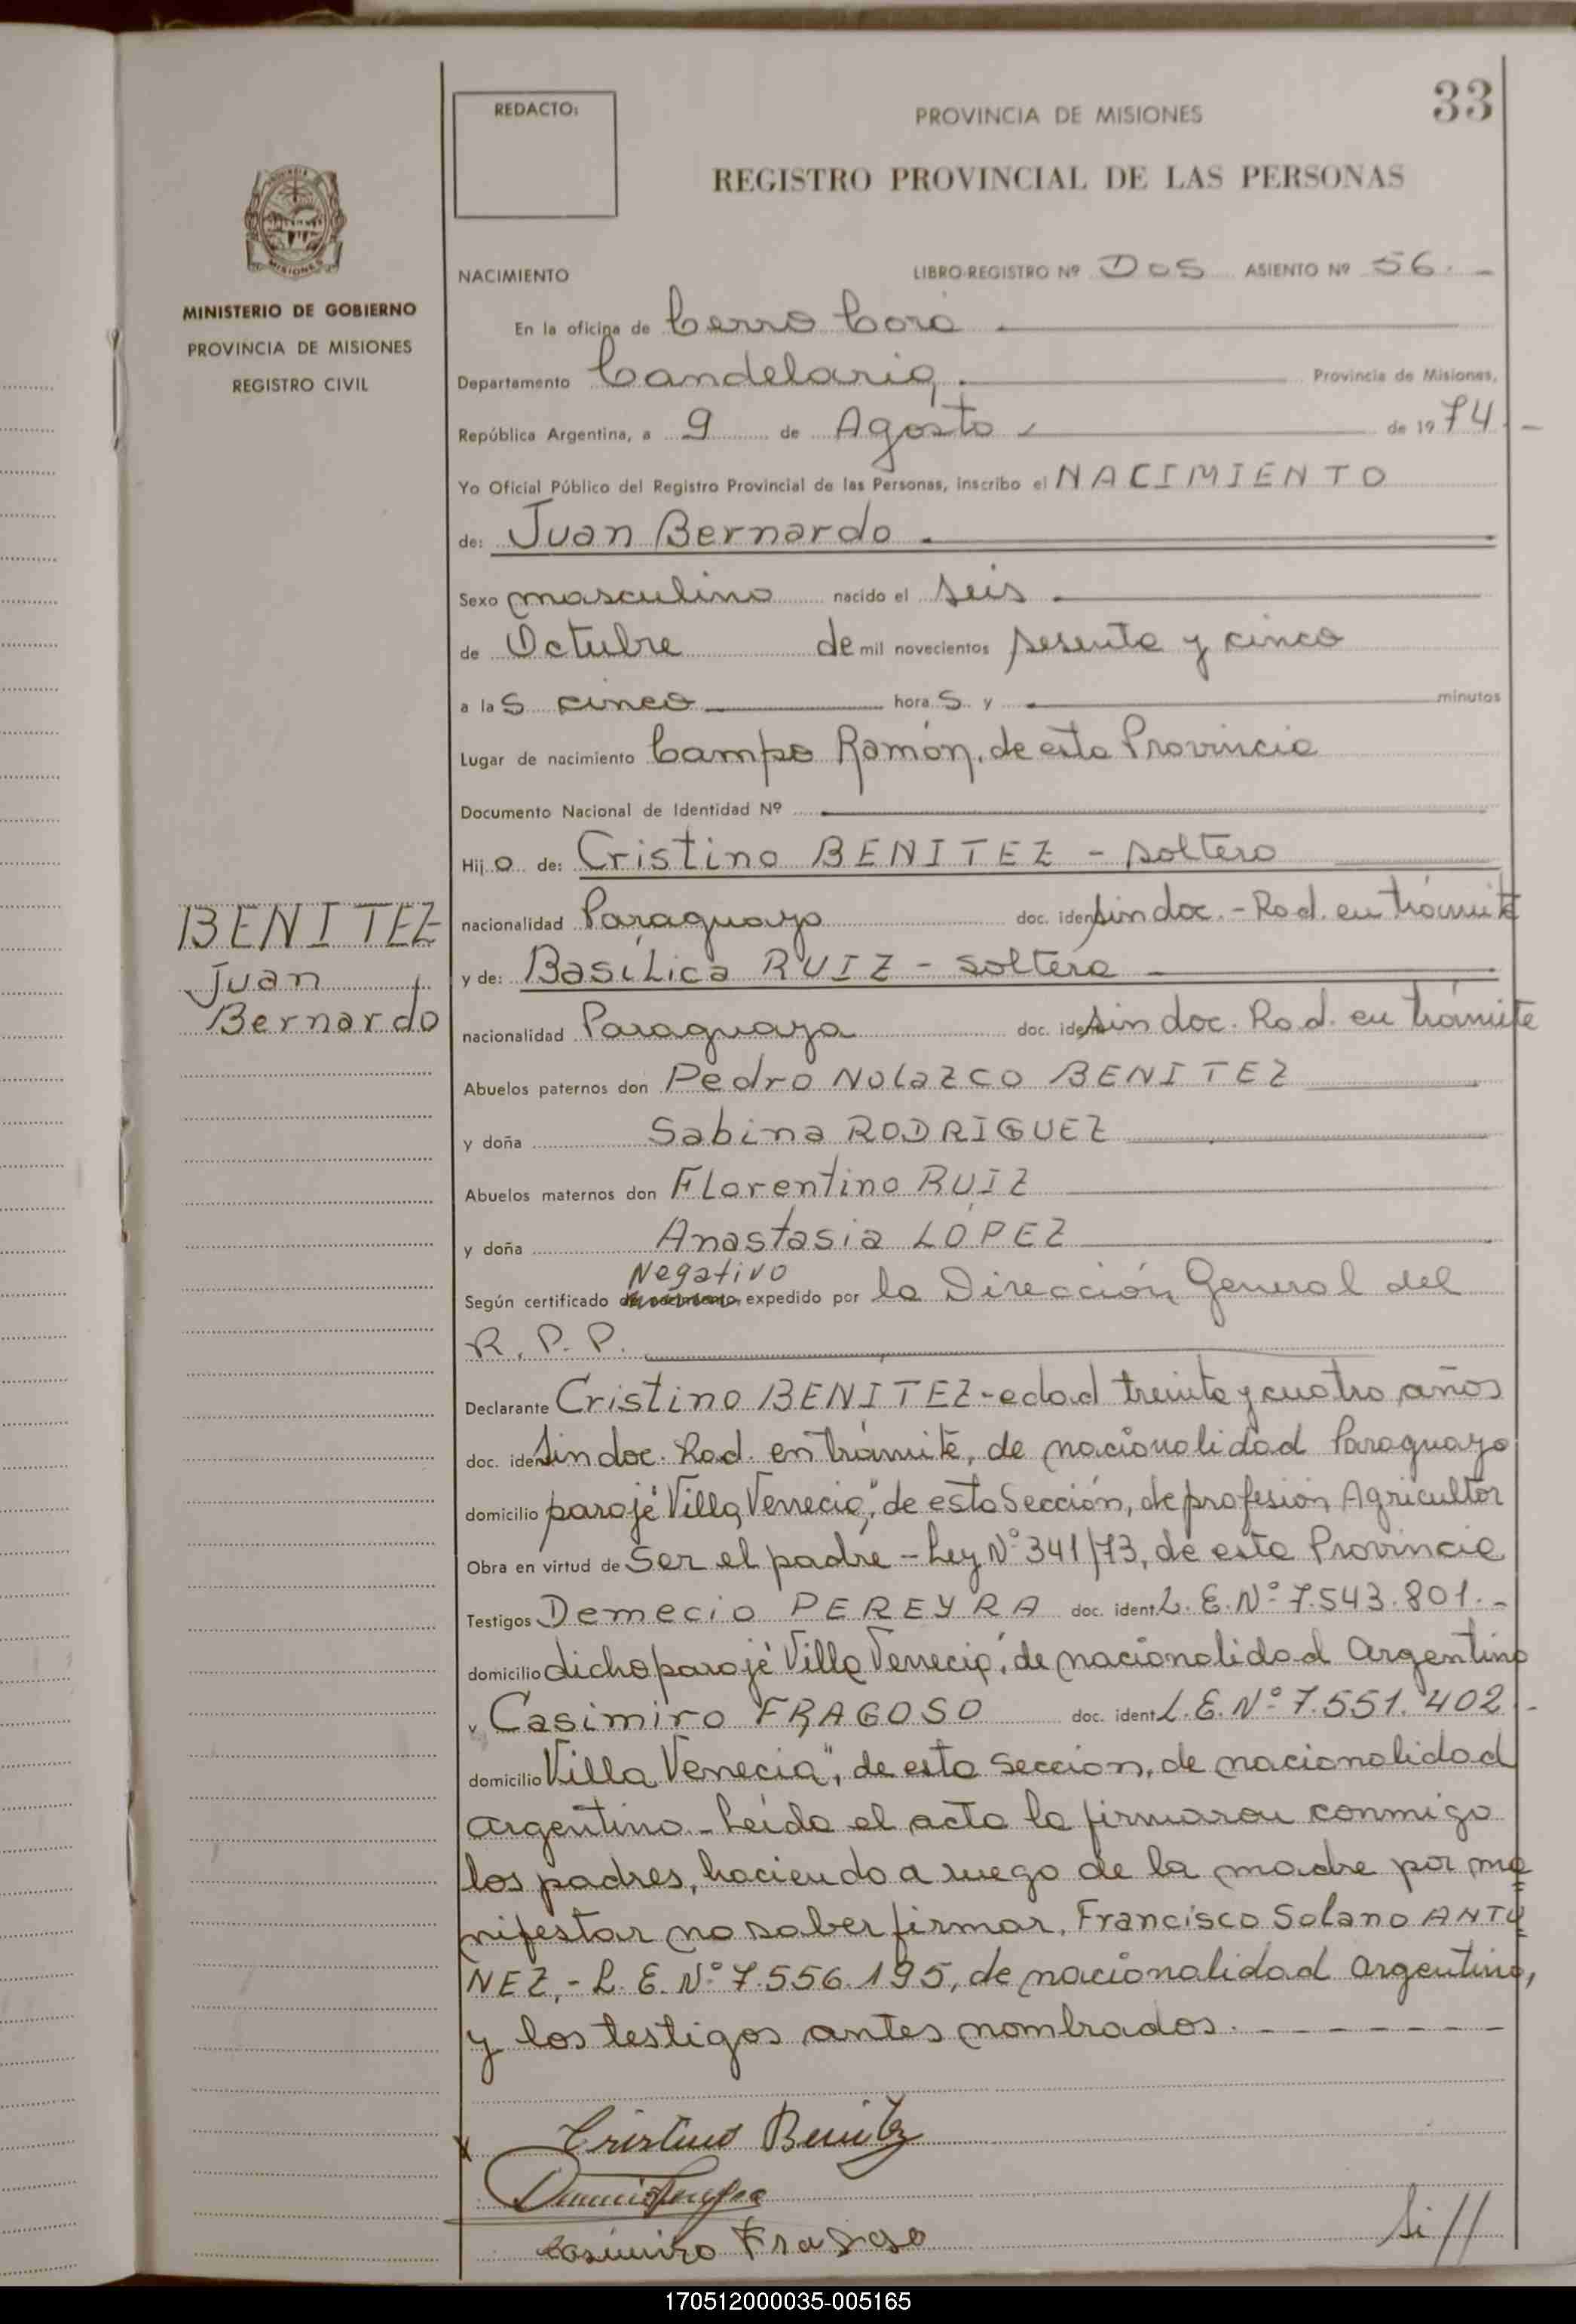 REDACTO:
PROVINCIA DE MISIONES
33
REGISTRO PROVINCIAL DE LAS PERSONAS
PROVINCIA
MISIONES
MINISTERIO DE GOBIERNO
PROVINCIA DE MISIONES
REGISTRO CIVIL
NACIMIENTO LIBRO-REGISTRO Nº Dos ASIENTO Nº 56.-
En la oficina de Cerro Corá
Departamento Candelaria, Provincia de Misiones,
República Argentina, a 9 de Agosto de 1974.-
Yo Oficial Público del Registro Provincial de las Personas, inscribo el NACIMIENTO
de: Juan Bernardo.
Sexo masculino nacido el seis
de Octubre de mil novecientos sesenta y cinco
a las cinco horas y minutos
Lugar de nacimiento Campo Ramón, de esta Provincia
Documento Nacional de Identidad Nº
Hijo de: Cristino BENITEZ - soltero
nacionalidad Paraguaya doc. iden sin doc. - Rad. en trámite
y de: Basilica RUIZ - soltera
nacionalidad Paraguaya doc. iden sin doc. Rad. en trámite
Abuelos paternos don Pedro Nolazco BENITEZ
y doña Sabina RODRIGUEZ
Abuelos maternos don Florentino RUIZ
y doña Anastasia LÓPEZ
Negativo
Según certificado expedido por la Dirección General del
R. P. P.
Declarante Cristino BENITEZ - edad treinta y cuatro años
doc. iden sin doc. Rad. en trámite, de nacionalidad Paraguaya
domicilio paraje "Villa Venecia", de esta Sección, de profesión Agricultor
Obra en virtud de Ser el padre - Ley Nº 341/73, de esta Provincia
Testigos Demecio PEREYRA doc. ident L. E. Nº 7.543.801.-
domicilio dicho paraje "Villa Venecia", de nacionalidad Argentino
y Casimiro FRAGOSO doc. ident L. E. Nº 7.551.402.-
domicilio Villa Venecia", de esta Sección, de nacionalidad
Argentino - Leída el acta la firmaron conmigo
los padres, haciendo a ruego de la madre por ma=
nifestar no saber firmar, Francisco Solano ANTU=
NEZ, - L. E. Nº 7.556.195, de nacionalidad Argentino,
y los testigos antes nombrados. - - - - - - -
BENITEZ
Juan
Bernardo
x Cristino Benitez
Casimiro Fragoso
Si//
170512000035-005165